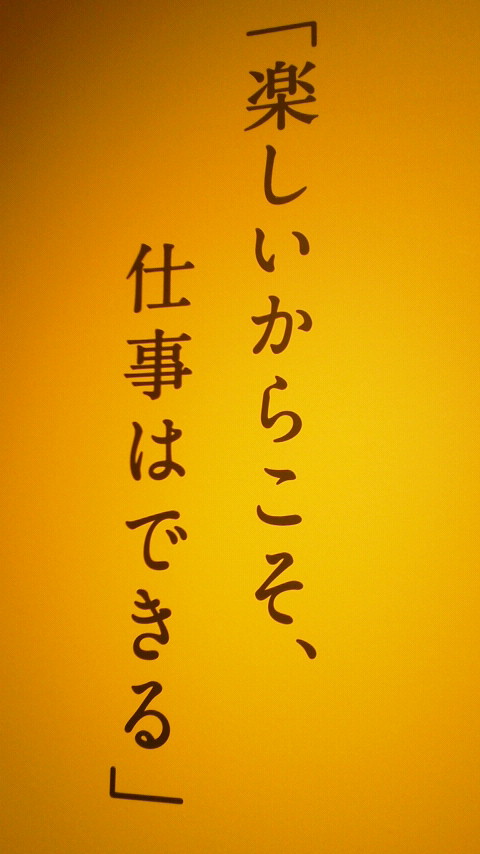 「楽しいからこそ、
仕事はできる」